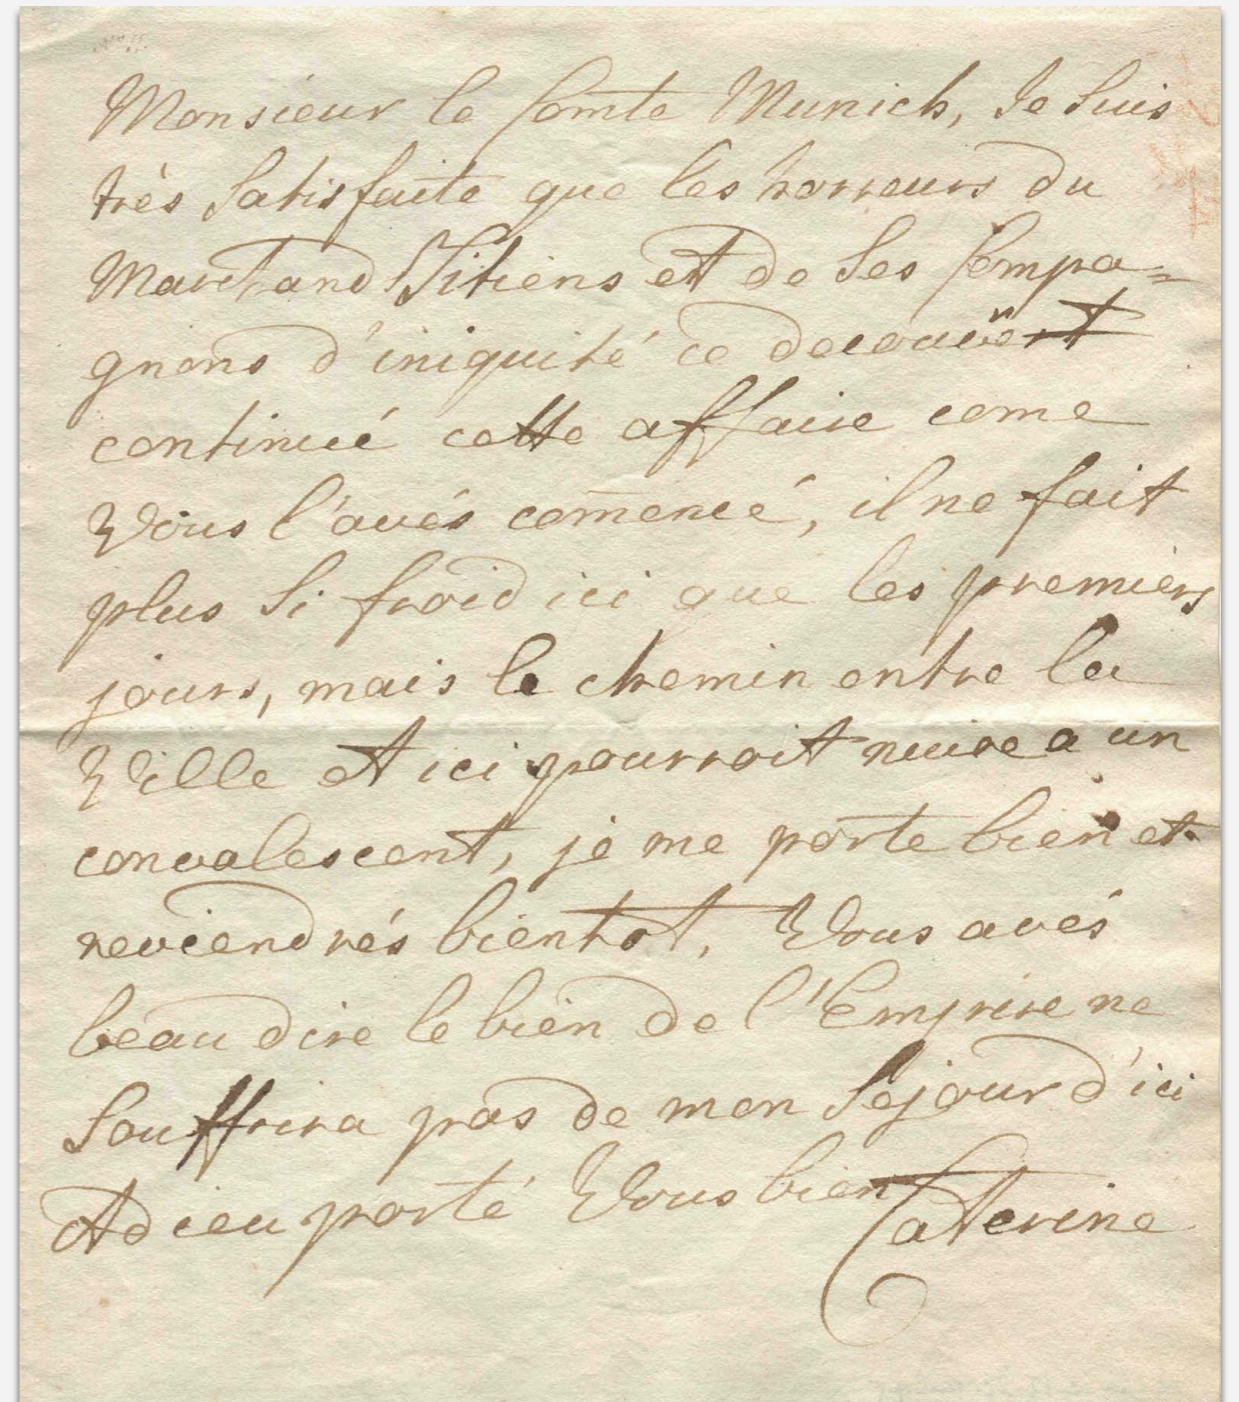 Monsieur le Comte Munich, Je suis
très satisfaite que les horreurs du
Marchand Sitiens et de ses Compa=
gnons d'iniquité ce decouvrent
continué cette affaire come
Vous l'avés comencé, il ne fait
plus si froid ici que les premiers
jours, mais le chemin entre la
Ville et ici pourroit nuire a un
convalescent, je me porte bien et
reviendrés bientot, Vous avés
beau dire le bien de l'Empire ne
souffrira pas de mon sejour d'ici
Adieu porté Vous bien
Caterine